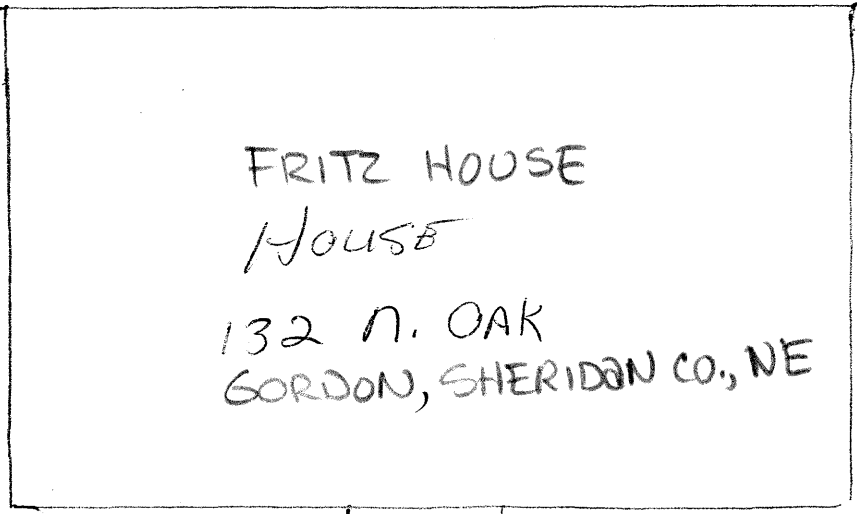 FRITZ HOUSE
HOUSE
132 N. OAK
GORDON, SHERIDAN CO., NE